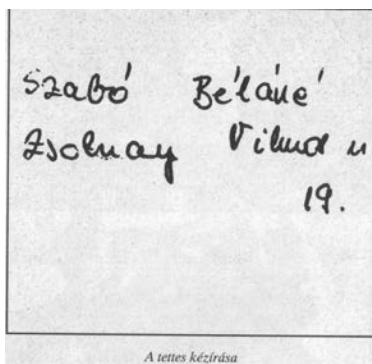 Szabó Béláné
Zsolnay Vilmos u
19.
A tettes kézírása